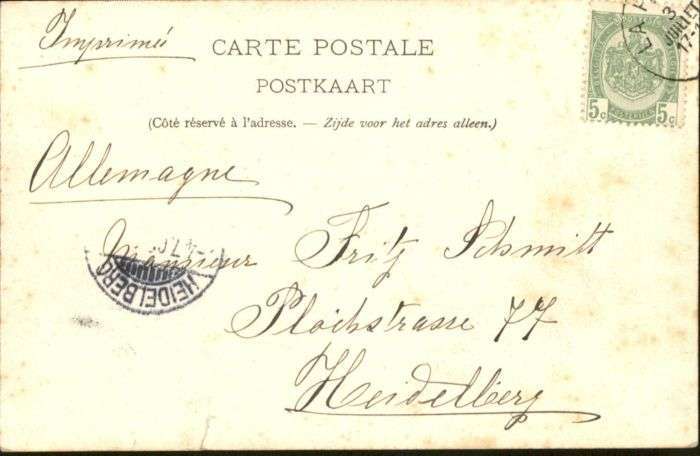 Imprimé
CARTE POSTALE
POSTKAART
(Côté réservé à l'adresse. — Zijde voor het adres alleen.)
5c 5c
3
JUILLET
Allemagne
Monsieur Fritz Schmitt
HEIDELBERG
Plöckstrasse 77
Heidelberg